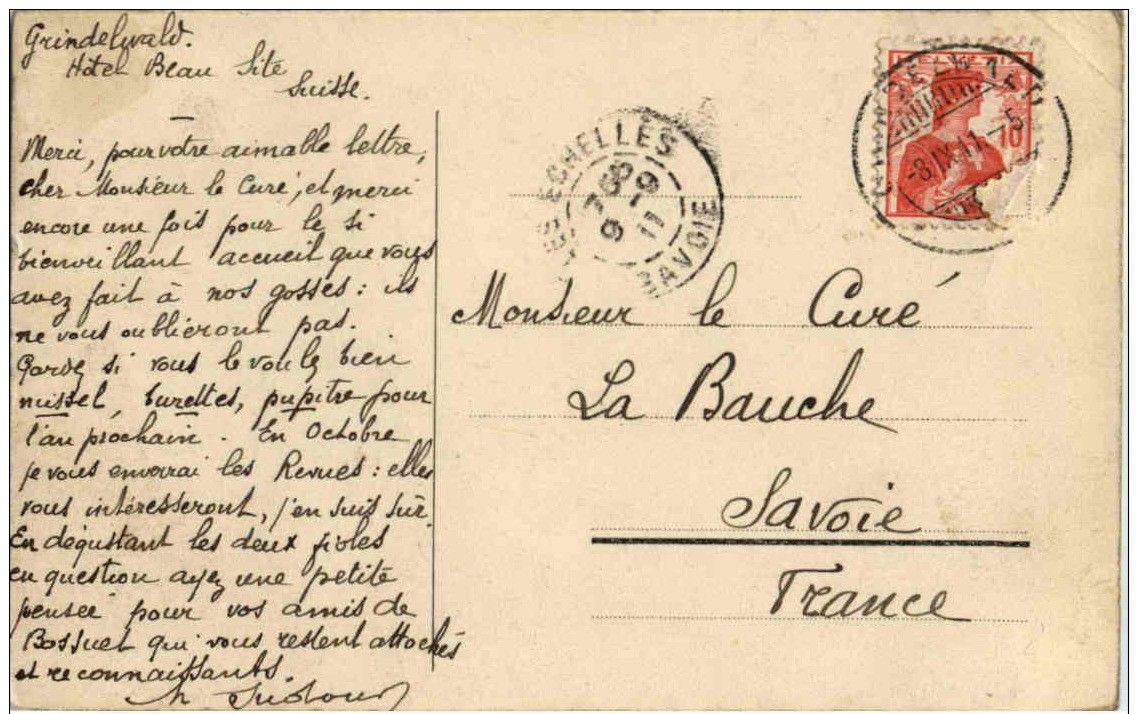 Grindelwald.
Hôtel Beau Site
Suisse.
Merci, pour votre aimable lettre,
cher Monsieur le Curé, et merci
encore une fois pour le si
bienveillant accueil que vous
avez fait à nos gosses : ils
ne vous oublieront pas.
Gardez si vous le voulez bien
missel, burettes, pupitre pour
l'an prochain. En Octobre
je vous enverrai les Revues : elles
vous intéresseront, j'en suis sûr.
En dégustant les deux fioles
en question ayez une petite
pensée pour vos amis de
Bossuet qui vous restent attachés
et reconnaissants.
LES ECHELLES
9 -9
11
SAVOIE
HELVETIA
10
-8.IX.11.-5
Monsieur le Curé
La Bauche
Savoie
France